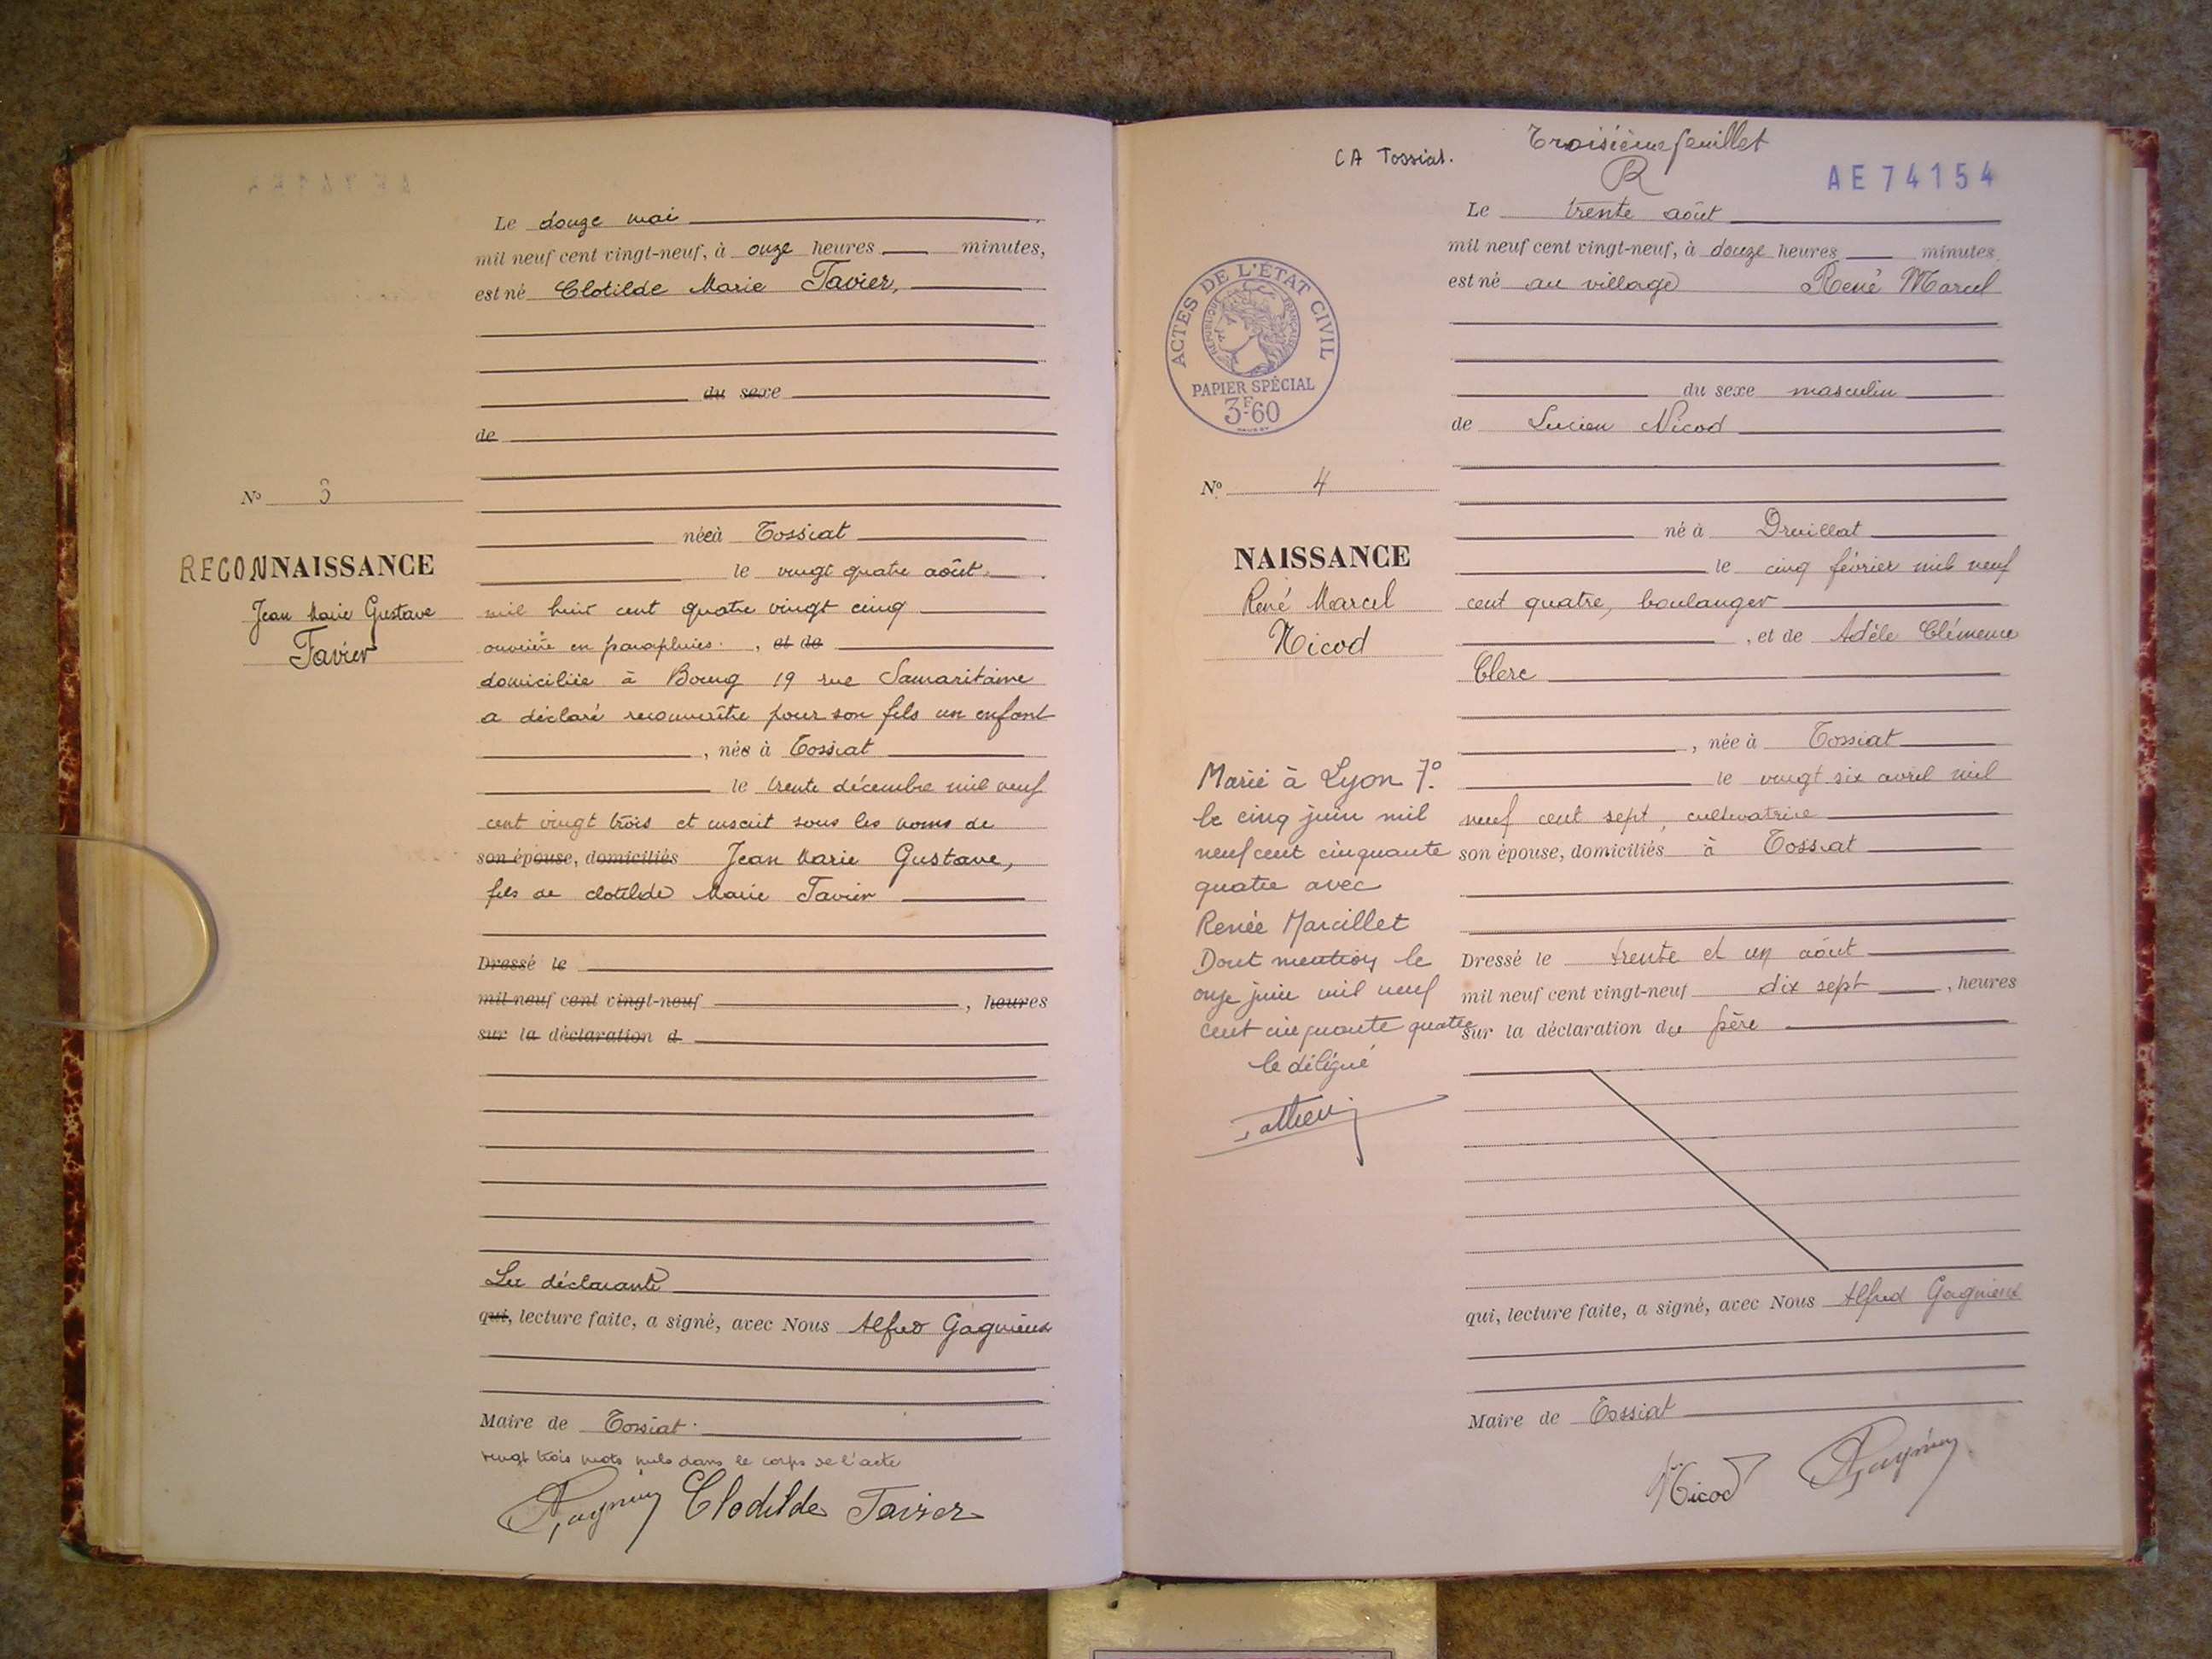 Le douze mai
mil neuf cent vingt-neuf, à onze heures minutes,
est né Clotilde Marie Tavier,
du sexe
de
N° 3
née à Tossiat
RECONNAISSANCE
le vingt quatre août
Jean Marie Gustave
Tavier
mil huit cent quatre vingt cinq
ouvrière en parapluies, et de
domiciliée à Bourg 19 rue Samaritaine
a déclaré reconnaître pour son fils un enfant
, née à Tossiat
le trente décembre mil neuf
cent vingt trois et inscrit sous les noms de
son épouse, domiciliés Jean Marie Gustave,
fils de clotilde Marie Tavier
Dressé le
mil neuf cent vingt-neuf , heures
sur la déclaration d
La déclarante
qui, lecture faite, a signé, avec Nous Alfred Gagnieux
Maire de Tossiat.
vingt trois mots nuls dans le corps de l'acte
Clodilde Tavier
CA Tossiat.
Troisième feuillet
AE 74154
Le trente août
mil neuf cent vingt-neuf, à douze heures minutes
est né au village René Marcel
ACTES DE L'ÉTAT CIVIL
RÉPUBLIQUE FRANÇAISE
PAPIER SPÉCIAL
3F60
du sexe masculin
de Lucien Nicod
N° 4
né à Druillat
NAISSANCE
René Marcel
Nicod
le cinq février mil neuf
cent quatre, boulanger
, et de Adèle Clémence
Clerc
, née à Tossiat
le vingt six avril mil
neuf cent sept, cultivatrice
son épouse, domiciliés à Tossiat
Marié à Lyon 7°
le cinq juin mil
neuf cent cinquante
quatre avec
Renée Marcillet
Dont mention le
onze juin mil neuf
cent cinquante quatre
le délégué
Dressé le trente et un août
mil neuf cent vingt-neuf dix sept , heures
sur la déclaration du père
qui, lecture faite, a signé, avec Nous Alfred Gagnieux
Maire de Tossiat
Nicod